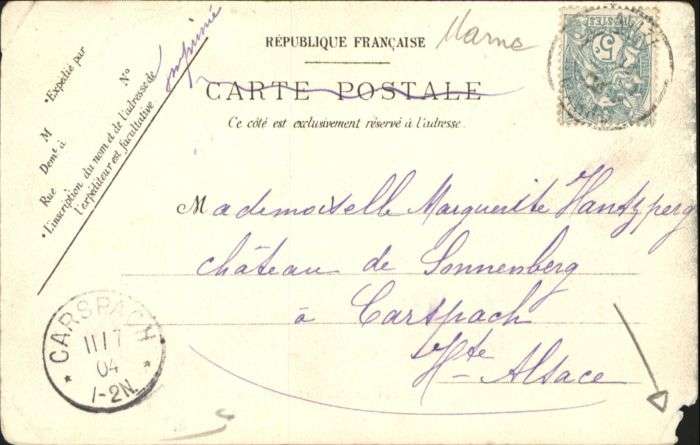 RÉPUBLIQUE FRANÇAISE
Marne
CARTE POSTALE
Ce côté est exclusivement réservé à l'adresse.
imprimé
•Expédié par
M N°
Demt à
Rue
•L'inscription du nom et de l'adresse de
l'expéditeur est facultative
POSTES
5
Mademoiselle Marguerite Hantzperg
château de Sonnenberg
à Carspach
Hte Alsace
* CARSPACH *
11 17
04
1-2N.